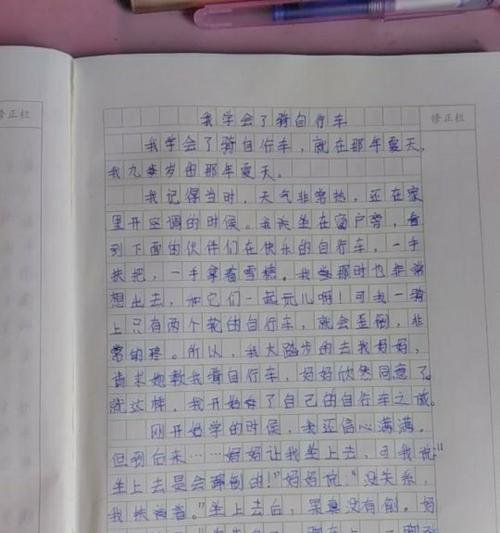 修正栏
修正栏
我学会了骑自行车
我学会了骑自行车，就在那年夏天，
我九岁的那年夏天。
我记得当时，天气非常热，还在家
里开空调的时候。我坐在窗户旁，看
到下面的伙伴们在快乐的自行车，一手
扶把，一手拿着雪糕。我当那时也非常
想出去，和它们一起玩儿啊！可我一骑
上只有两个轮的自行车，就会歪倒，非
常的疼。所以，我大踏步的去找妈妈，
请求她教我骑自行车，妈妈欣然同意了。
就这样，我开始了自己的自行车之旅。
刚开始学的时候，我还信心满满。
但到后来……妈妈让我坐上去，可我说："
坐上去是会摔倒的！"妈妈说："没关系，
我扶着。"坐上去后，果真没有倒。妈